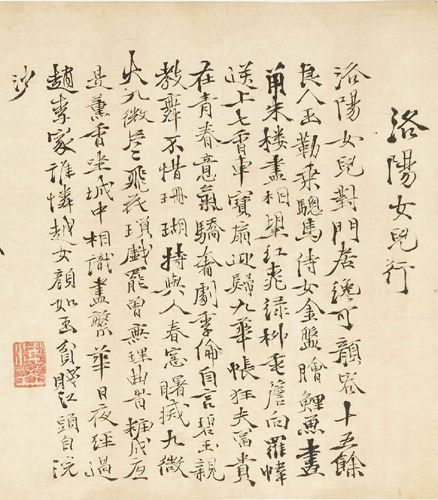 洛陽女兒行
洛陽女兒對門居纔可顏容十五餘
良人玉勒乘驄馬侍女金盤膾鯉魚畫
閣朱樓盡相望紅桃綠柳垂簷向羅幃
送上七香車寶扇迎歸九華帳狂夫富貴
在青春意氣驕奢劇季倫自言碧玉親
教舞不惜珊瑚持與人春窗曙滅九微
火九微片片飛花瑣戲罷曾無理曲時糚成祗
是薰香坐城中相識盡繁華日夜經過
趙李家誰憐越女顏如玉貧賤江頭自浣
沙